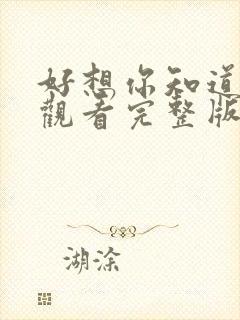 好想你知道
觀看完整版
湖涂